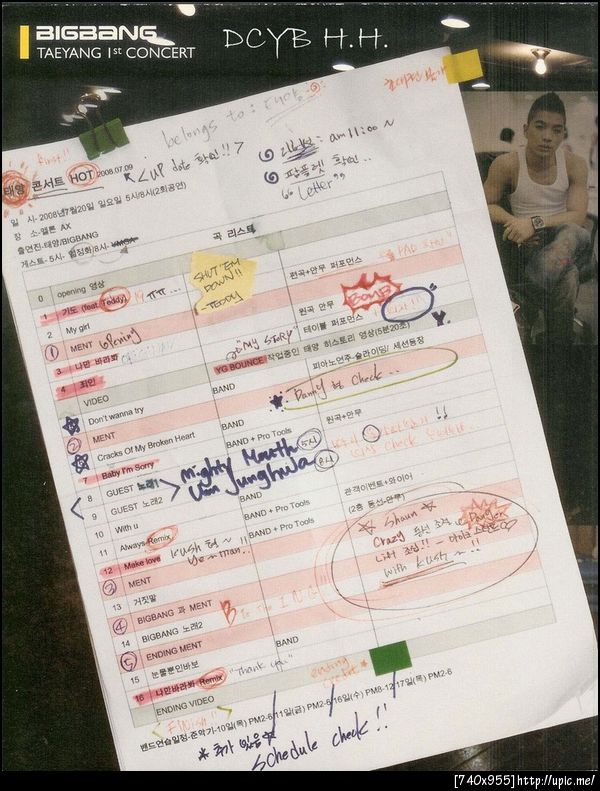 BIGBANG
TAEYANG 1st CONCERT
DCYB H.H.
belongs to:
first!!
태양 콘서트 HOT 2008.07.09
up date 확인!! ?
리허설: am 11:00 ~
팜플렛 확인..
"Letter"
일 시- 2008년7월20일 일요일 5시/8시(2회공연)
장 소-멜론 AX
출연진-태양/BIGBANG
게스트- 5시- 엄정화/8시-
곡 리스트
0 opening 영상
SHUT 'EM DOWN!!
-TEDDY
1 기도 (feat.Teddy) 원곡+안무 퍼포먼스
ㅠㅠ...
2 My girl
BOMB
① MENT opening 원곡 안무
3 나만 바라봐 "MY STORY" 테이블 퍼포먼스
4 죄인 YG BOUNCE 작업중인 태양 히스토리 영상(5분20초)
VIDEO 피아노연주-슬라이딩/ 세션등장
Don't wanna try BAND
Danny 형 Check...
② MENT
Cracks Of My Broken Heart BAND + Pro Tools 원곡+안무
7 Baby I'm Sorry BAND
8 GUEST 노래1 Mighty Mouth 5시
9 GUEST 노래2 Uhm Junghwa 8시
10 With u BAND 관객이벤트+와이어
11 Always Remix BAND + Pro Tools (2층 동선-안무)
12 Make love BAND + Pro Tools
Kush 형 ~
Ye~man..
Shaun
Crazy 동선
Danger
with Kush ~!!
③ MENT
13 거짓말
④ BIGBANG 과 MENT
B to the I N G!!
14 BIGBANG 노래2
⑤ ENDING MENT
15 눈물뿐인바보 BAND
"Thank you"
16 나만바라봐 Remix
ending credit *
ENDING VIDEO
FINISH!!
밴드연습일정-준악기-10일(목) PM2-6/11일(금) PM2-6/16일(수) PM8-12/17일(목) PM2-6
* 추가 있음 *
Schedule check!!
[740x955]http://upic.me/